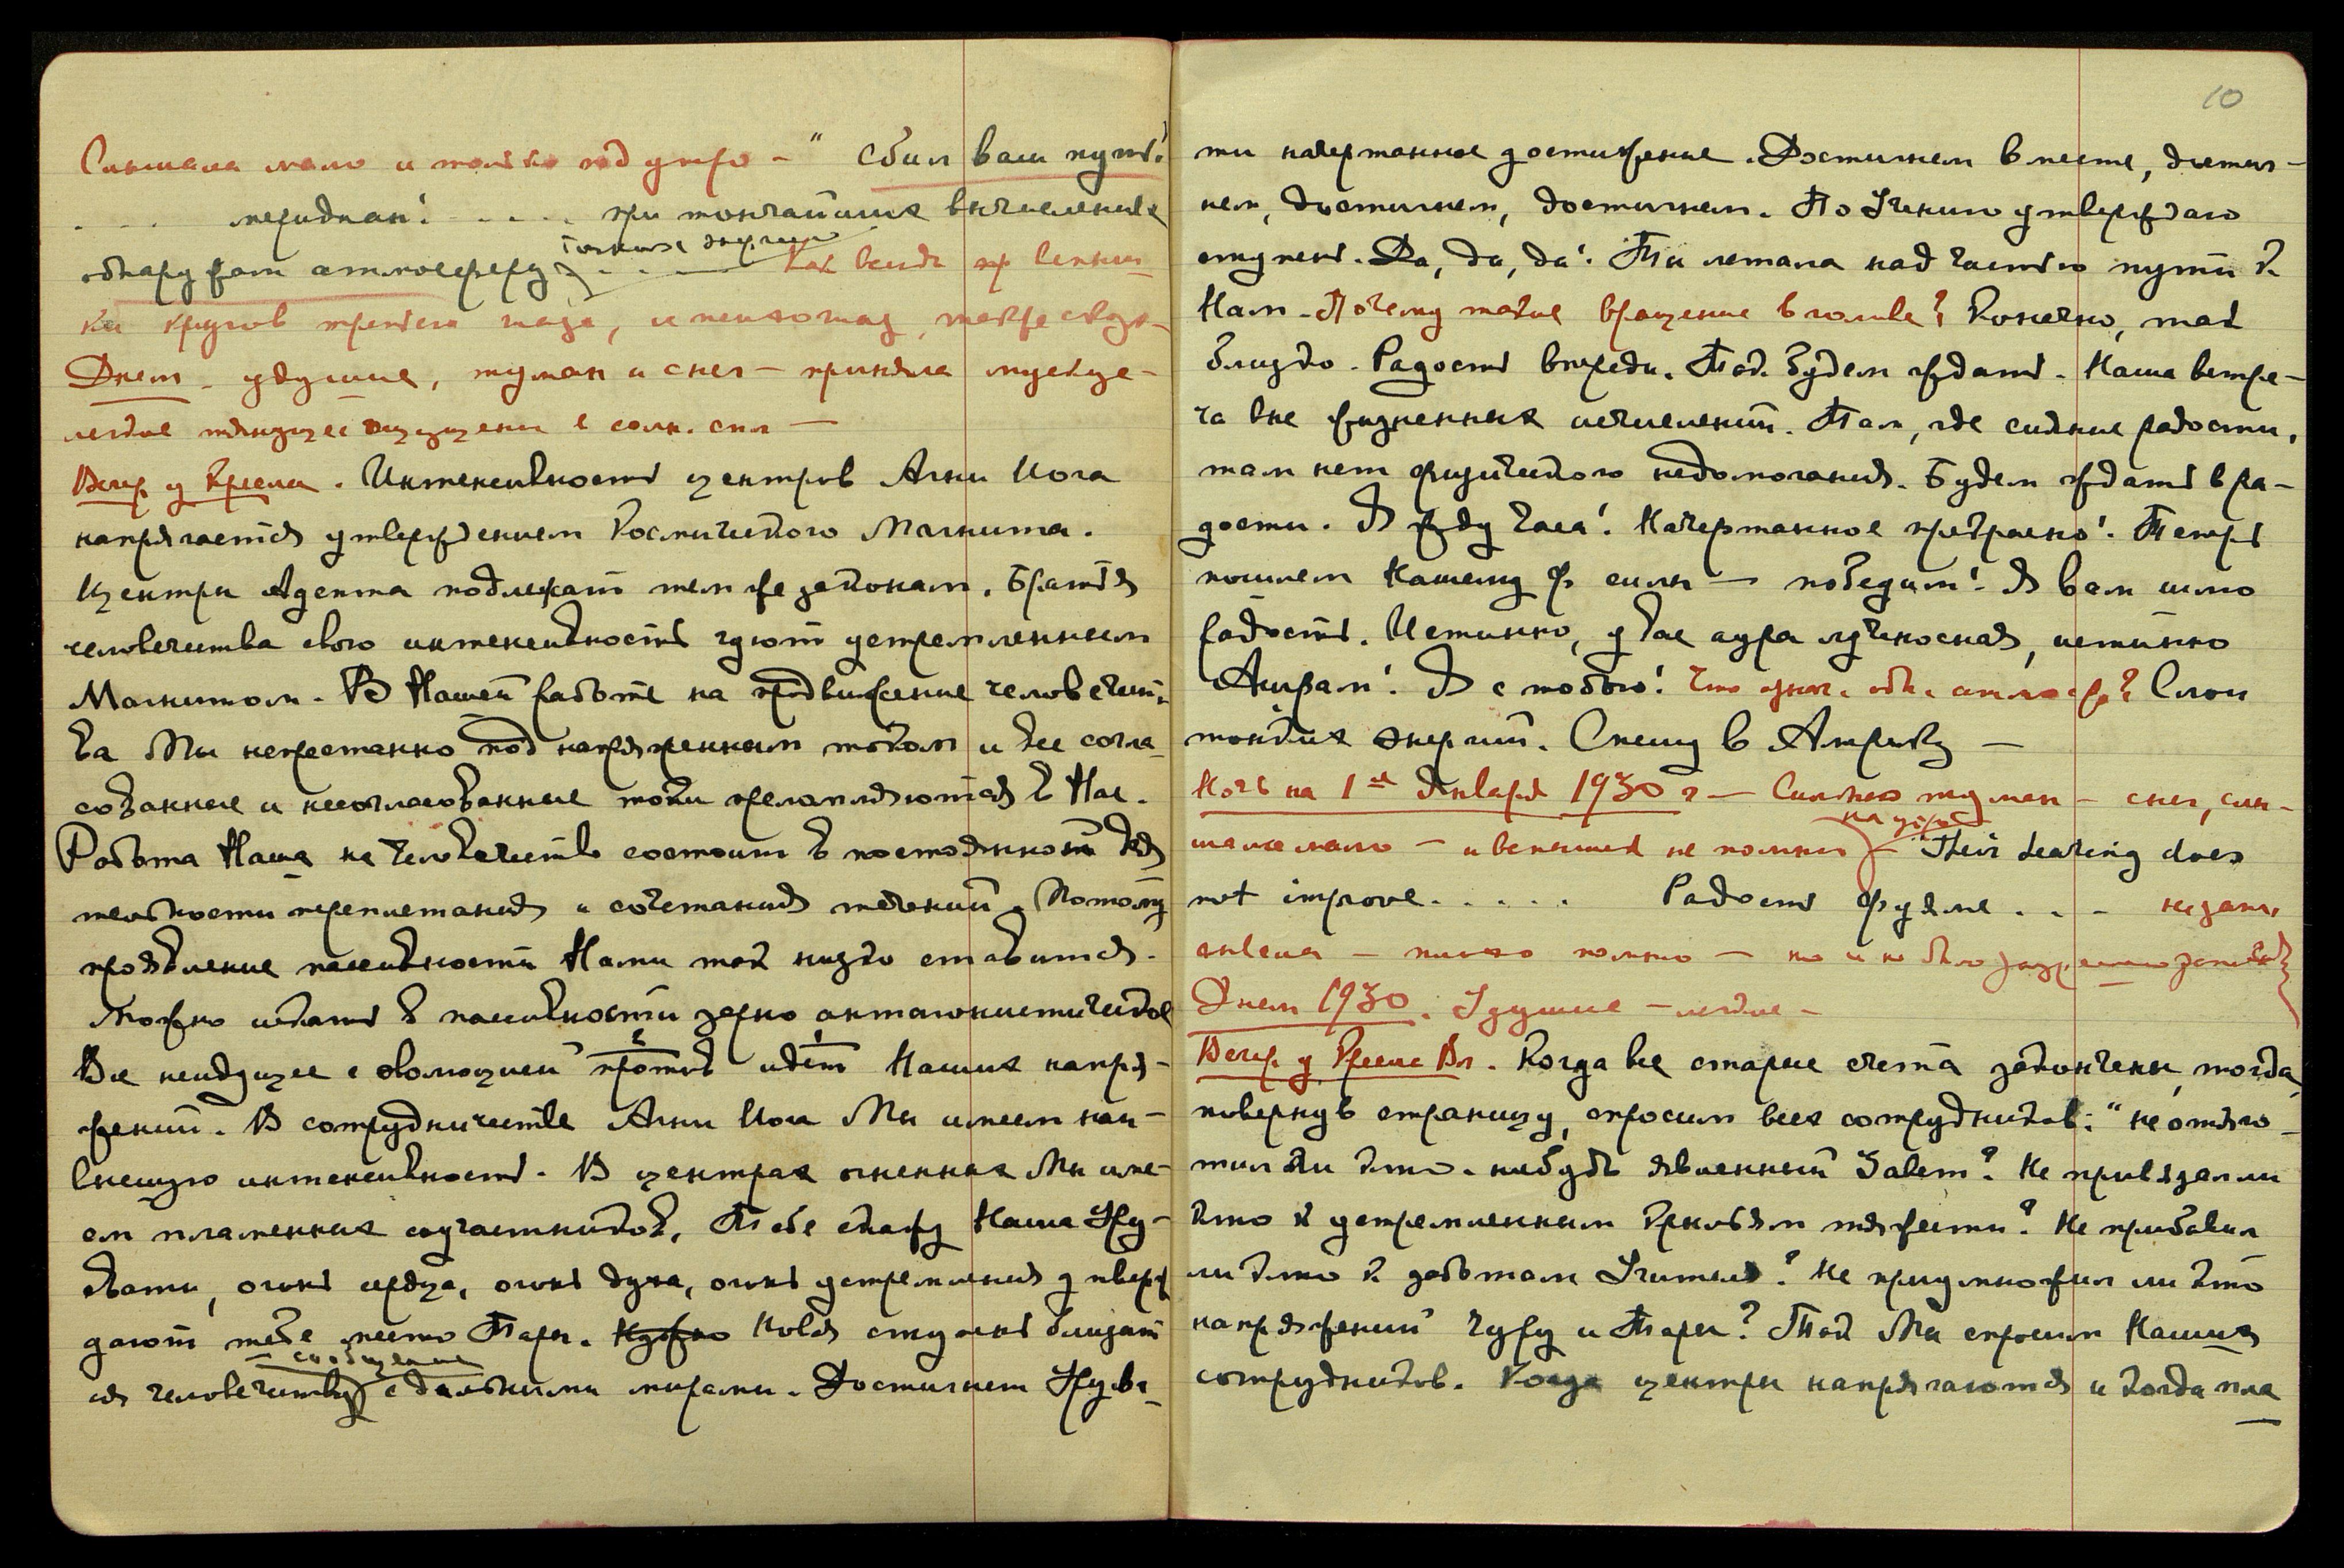 Слышала мало и только под утро – "Сбил ваш путь!
. . . . меридиан! . . . . . при тончайших вычислениях
тонких энергию
обнаружат атмосферу . . . — Как всегда пр вспыш
ки кругов третьего глаза,
Днем – удушие, туман и снег – приняла мускус –
легкие тянущие ощущения в солн. спл —
Вечер у Кресла. Интенсивность центров Агни Йога
напрягается утверждением Космического Магнита.
Центры Адепта подлежат тем же законам. Братья
человечества свою интенсивность чуют устремленным
Магнитом. В Нашей работе на продвижение человечест-
ва Мы непрестанно под напряженным током и все согла
сованные и несогласованные токи преломляются в Нас.
Работа Наша на человечество состоит в постоянной дея
тельности переплетания и сочетания течений. Потому
проявление пассивности Нами так низко ставится.
Можно искать в пассивности зерно антагонистическое
Все неидущее с эволюцией против идет Наших напря-
жений. В сотрудничестве Агни Йоги Мы имеем наи-
высшую интенсивность. В центрах огненных Мы име-
ем пламенных соучастников. Тебе скажу Наша Уру-
свати, огонь сердца, огонь духа, огонь устремления утверж
дают тебе место Тары. Нужно Новая ступень близит
сообщение
ся человечеству с дальними мирами. Достигнет Урусва-
10
ти начертанное достижение. Достигнем вместе, достиг-
нем, достигнем, достигнем. По Учению утверждаю
ступень. Да, да, да! Ты летала над частью пути к
Нам. Почему такие вращение в голове? Конечно, так
близко. Радость впереди. Так будем ждать. Наша встре-
ча вне жизненных исчислений. Там, где сияние радости,
там нет физического недомогания. Будем ждать в ра-
дости. Я жду часа! Начертанное прекрасно! Теперь
пошлем Нашему Ф силы — победит! Я вам шлю
радость. Истинно, у вас аура лученосная, истинно
Аирам! Я с тобою! Что знач. обн. атмосф? Слои
тонких энергий. Спешу в Америку —
Ночь на 1ое Января 1930 г — Сильно туман – снег, слы-
на утро
шала мало – и вспышек не помню – "Their hearing does
not improve. . . . . Радость Фуяме . . – не запи
– но и не было
Днем 1930. Удушие – легкие –
Вечер у Кресла Вл. Когда все старые счета закончены, тогда
повернув страницу, спросим всех сотрудников: "не отяго-
тил ли кто-нибудь явленный Завет? Не привязал ли
кто к устремленным крыльям тяжести? Не прибавил
ли кто к заботам Учителя? Не приумножил ли кто
напряжений Гуру и Тары? Так Мы спросим Наших
сотрудников. Когда центры напрягаются и когда пла